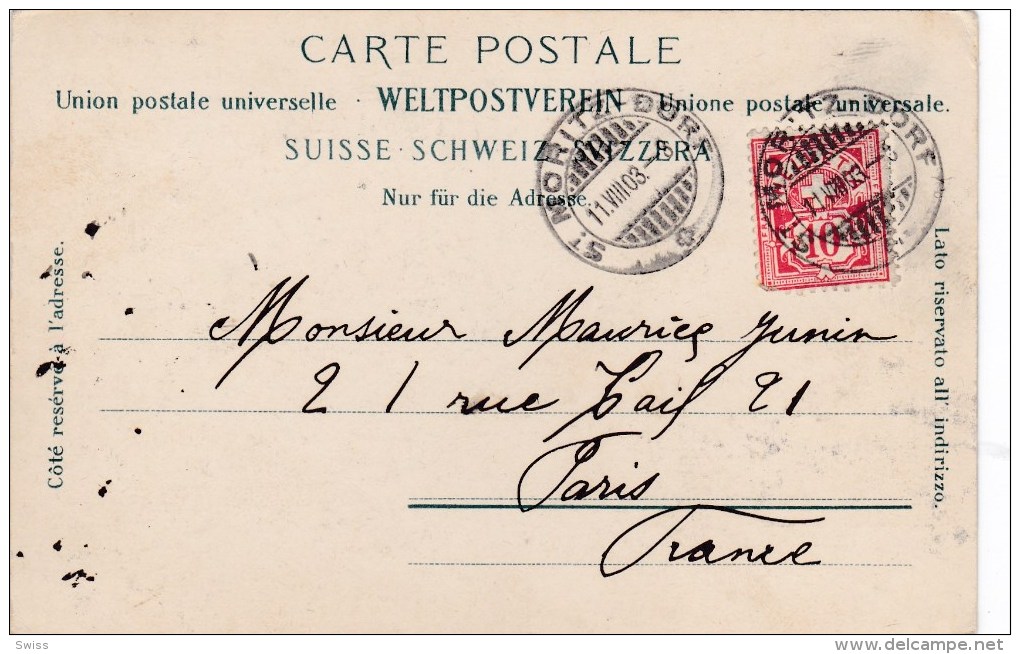 CARTE POSTALE
Union postale universelle · WELTPOSTVEREIN · Unione postale universale.
SUISSE · SCHWEIZ · SVIZZERA
Nur für die Adresse.
ST MORITZ-DORF
11.VIII.03.-8
ST MORITZ-DORF
11.VIII.03.-8
10
Côté reservé à l'adresse.
Lato riservato all' indirizzo.
Monsieur Maurice Junin
21 rue Tail 21
Paris
France
Swiss
delcampe.net